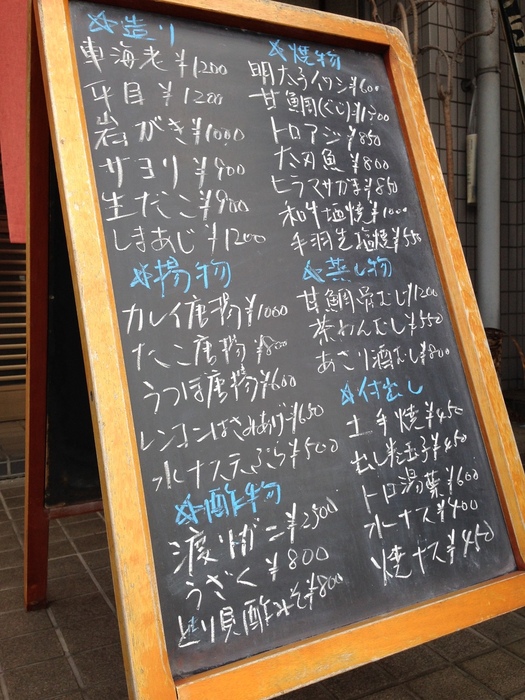 ☆造り
車海老 ¥1200
平目 ¥1200
岩がき ¥1000
サヨリ ¥900
生だこ ¥900
しまあじ ¥1200
☆揚物
カレイ唐揚 ¥1000
たこ唐揚 ¥800
うつぼ唐揚 ¥600
レンコンはさみあげ ¥650
水ナス天ぷら ¥500
☆酢物
渡りガニ ¥2500
うざく ¥800
とり貝酢みそ ¥800
☆焼物
明太子イワシ ¥600
甘鯛(ぐじ) ¥1300
トロアジ ¥850
太刀魚 ¥800
ヒラマサかま ¥850
和牛塩焼 ¥1000
手羽先塩焼 ¥550
☆蒸し物
甘鯛骨むし ¥1200
茶わんむし ¥550
あさり酒むし ¥800
☆付出し
土手焼 ¥450
出し巻玉子 ¥450
トロ湯葉 ¥600
水ナス ¥400
焼ナス ¥450